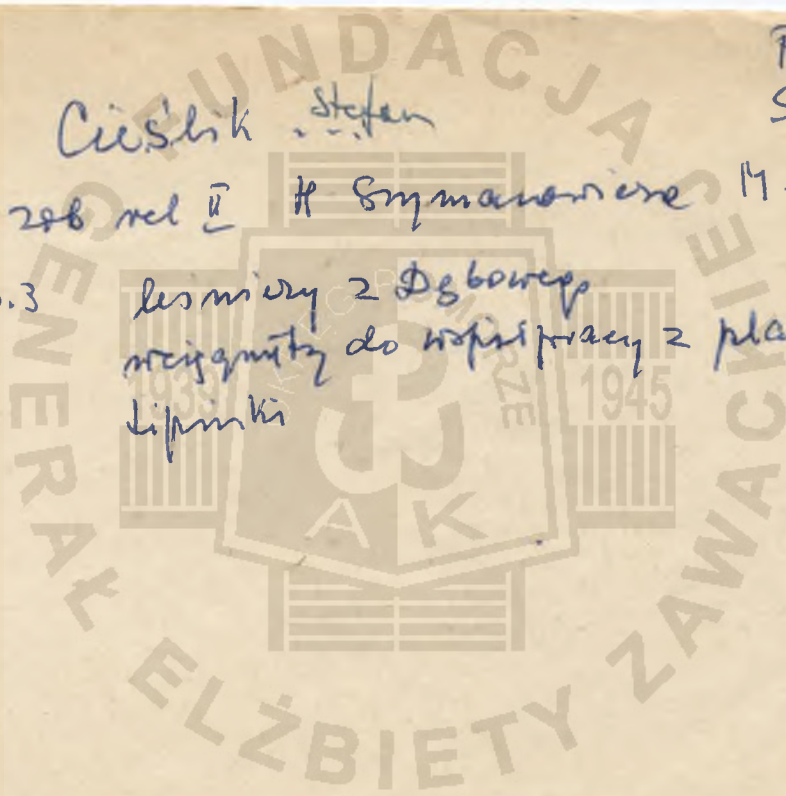 Cieślik Stefan
zob rel II H Szymanowicza M.
s.3 leśniczy z Dębowego
wciągnięty do współpracy z pla
Lipiński
FUNDACJA
GENERAŁ ELŻBIETY ZAWACKIEJ
OKRĘG POMORZE
1939
1945
AK